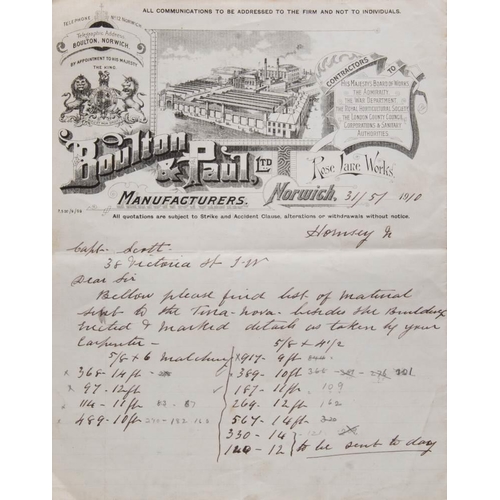 ALL COMMUNICATIONS TO BE ADDRESSED TO THE FIRM AND NOT TO INDIVIDUALS.
TELEPHONE Nº 12 NORWICH.
Telegraphic Address
BOULTON, NORWICH.
BY APPOINTMENT TO HIS MAJESTY
THE KING.
CONTRACTORS TO
HIS MAJESTY'S BOARD OF WORKS
THE ADMIRALTY
THE WAR DEPARTMENT
THE ROYAL HORTICULTURAL SOCIETY
THE LONDON COUNTY COUNCIL
CORPORATIONS & SANITARY
AUTHORITIES.
Boulton
& Paul, LTD
Rose Lane Works.
MANUFACTURERS.
Norwich, 31/5/ 1910
All quotations are subject to Strike and Accident Clause, alterations or withdrawals without notice.
Hornsey
Capt. Scott.
38 Victoria St S.W
Dear Sir
Bellow please find list of material
sent to the Tirra-nova. besides the Building
erected & marked details as taken by your
Carpenter -
5/8 x 6 matching
x 368 - 14ft
x 97 - 12ft
x 114 - 11ft 87
x 489 - 10ft 152
5/8 x 4 1/2
x 917 - 9ft
x 389 - 10ft 301
187 - 11ft 109
264 - 12ft 162
567 - 14ft
330 - 14
120 - 12 } to be sent to day